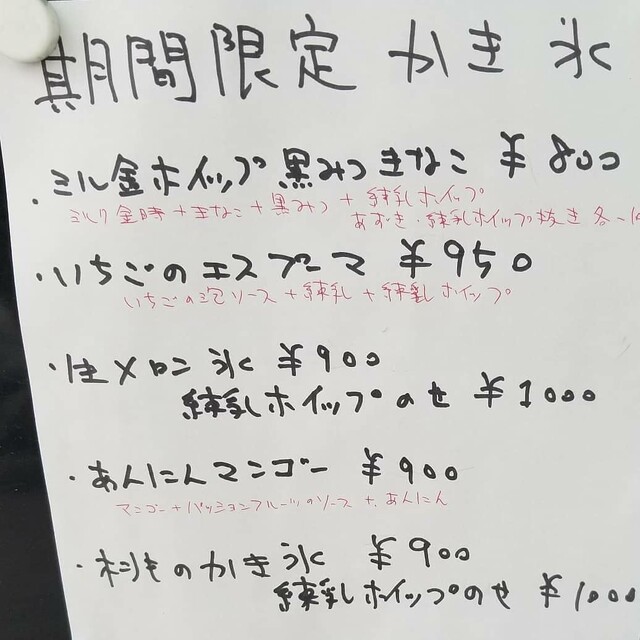 期間限定 かき氷
・ミル金ホイップ黒みつきなこ ¥800
ミルク金時+きなこ+黒みつ+練乳ホイップ
あずき・練乳ホイップ抜き各
・いちごのエスプーマ ¥950
いちごの泡ソース+練乳+練乳ホイップ
・生メロン氷 ¥900
練乳ホイップのせ ¥1000
・あんにんマンゴー ¥900
マンゴー+パッションフルーツのソース+あんにん
・ のかき氷 ¥900
練乳ホイップのせ ¥1000